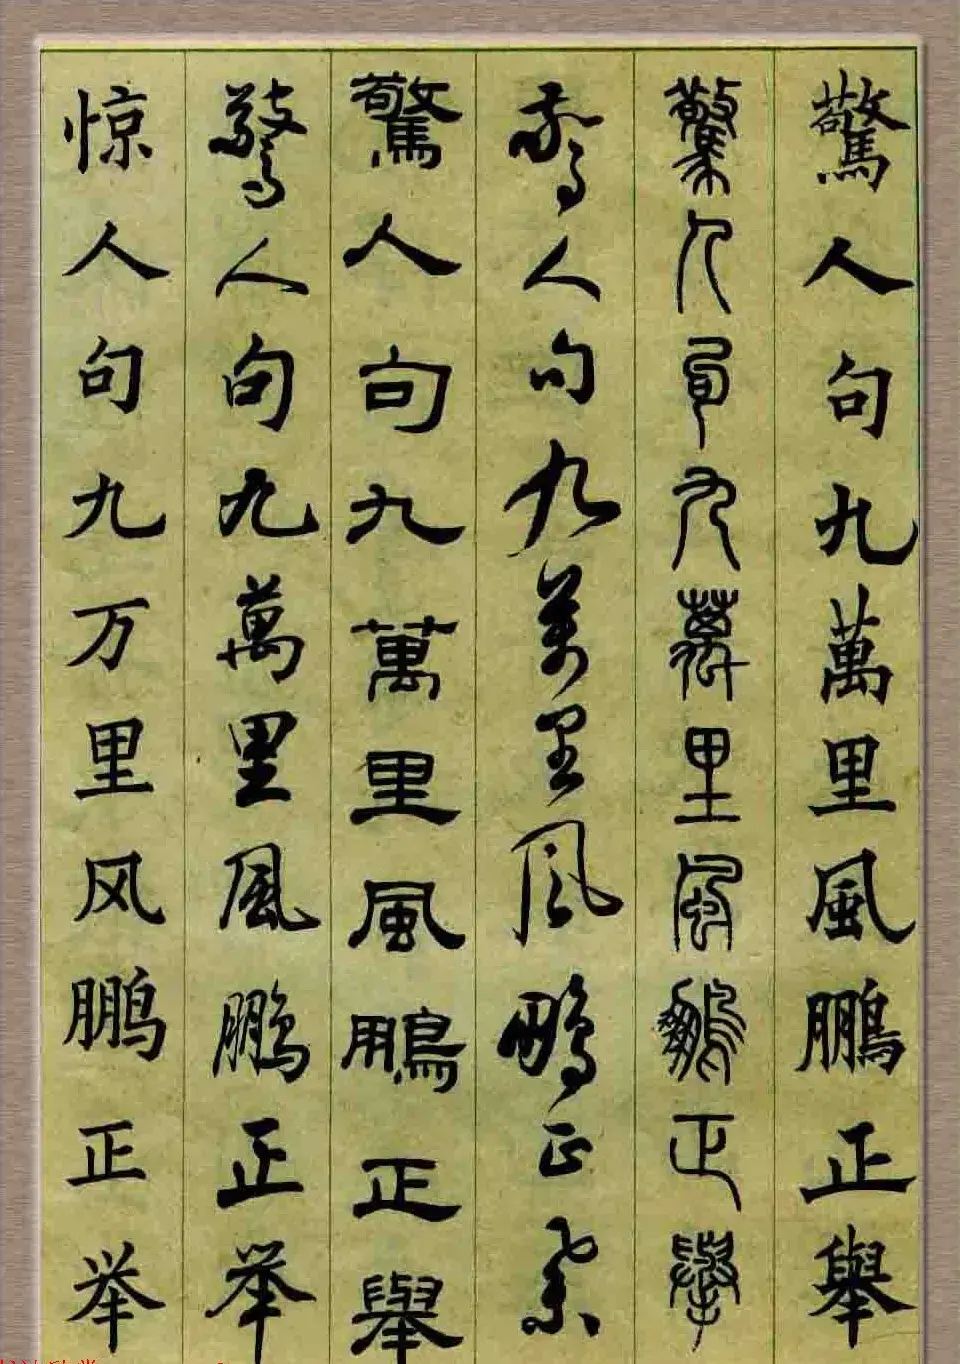 驚人句九萬里風鵬正舉
驚人句九萬里風鵬正舉
驚人句九萬里風鵬正舉
驚人句九萬里風鵬正舉
驚人句九萬里風鹏正举
惊人句九万里风鹏正举